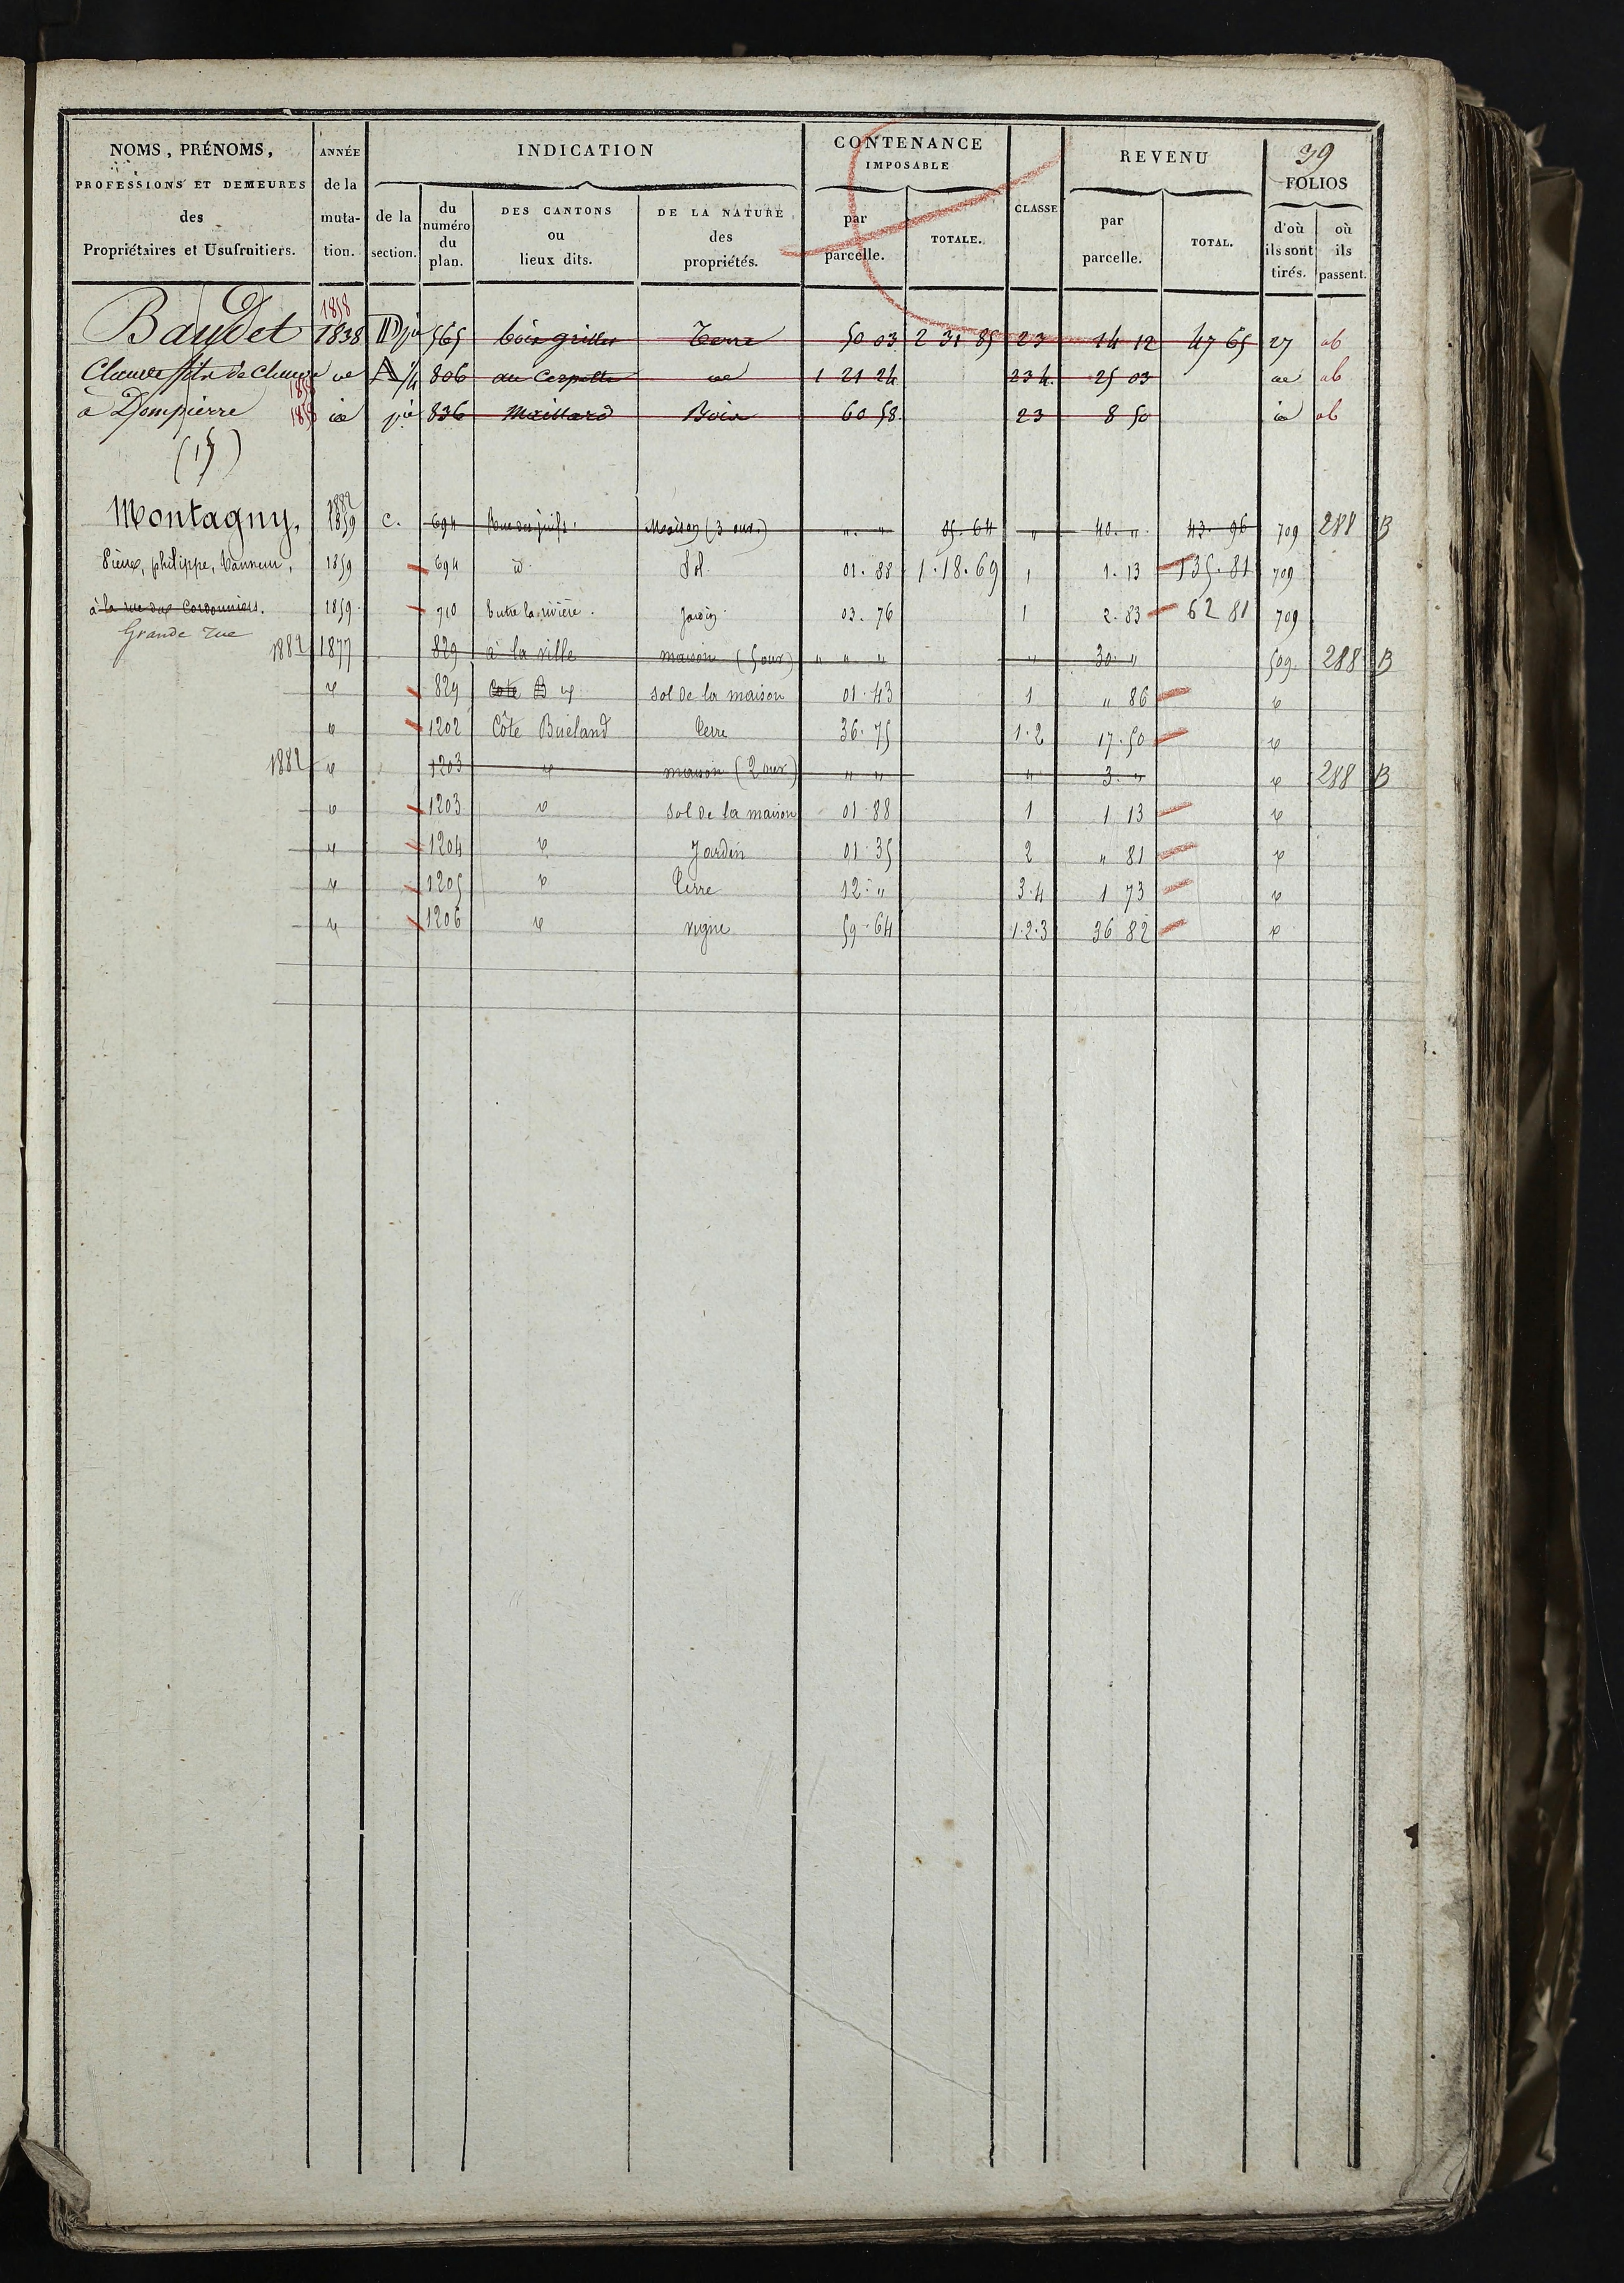 39
NOMS, PRÉNOMS, PROFESSIONS ET DEMEURES des Propriétaires et Usufruitiers. | ANNÉE de la muta-tion. | INDICATION | de la section. | du numéro du plan. | DES CANTONS ou lieux dits. | DE LA NATURE des propriétés. | CONTENANCE IMPOSABLE | par parcelle. | TOTALE. | CLASSE | REVENU | par parcelle. | TOTAL. | FOLIOS | d'où ils sont tirés. | où ils passent.
1858
Baudet 1838 D pie 565 bois grillet Terre 50 03 2 31 85 23 14 12 47 65 27 ab
Claude fils de Claude id A 806 au id 1 21 24 234 25 03 id ab
1858
à Dompierre 1858 id pie 836 Maillard Bois 60 58 23 8 50 id ab
(15)
1882
Montagny, 1859 C. 694 Rue des juifs. Maison (3 ouv.) " " 05. 64 " 40. " 43. 96 709 288 B
Pierre, philippe, 1859 694 id. Sol 01. 88 1. 18. 69 1 1. 13 135. 81 709
à la rue des Cordonniers. 1859 710 Entre la rivière. Jardin 03. 76 1 2. 83 62 81 709
Grande rue
1882 1877 829 à la ville maison (5 ouv) " " " " 30 " 509. 288 B
id 829 Cote B id sol de la maison 01. 43 1 " 86 id
id 1202 Côte Buéland terre 36. 75 1. 2 17. 50 id
1882 id 1203 id maison (2 ouv) " " " 3. " id 288 B
id 1203 id sol de la maison 01. 88 1 1 13 id
id 1204 id Jardin 01. 35 2 " 81 id
id 1205 id terre 12. " 3. 4 1 73 id
id 1206 id vigne 59. 64 1. 2. 3 36 82 id